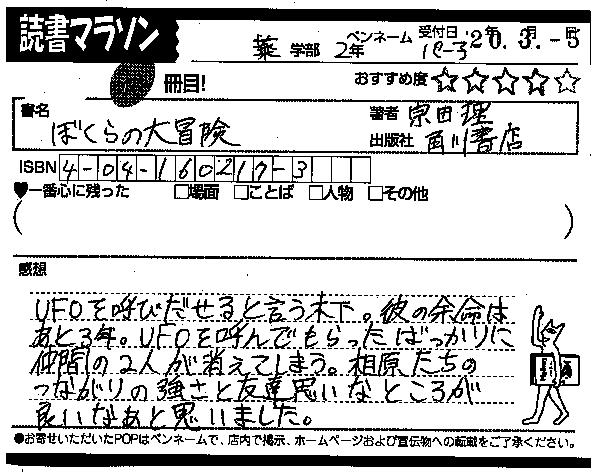 読書マラソン
薬 学部 2年 ペンネーム パーラ 受付日 '20.3.-5
冊目!
おすすめ度 ☆☆☆☆☆
書名 ぼくらの大冒険
著者 宗田理
出版社 角川書店
ISBN 4-04-160217-3
♥一番心に残った □場面 □ことば □人物 □その他
( )
感想
UFOを呼びだせると言う木下。彼の余命は
あと3年。UFOを呼んでもらったばっかりに
仲間の2人が消えてしまう。相原たちの
つながりの強さと友達思いなところが
良いなあと思いました。
●お寄せいただいたPOPはペンネームで、店内で掲示、ホームページおよび宣伝物への転載をご了承ください。